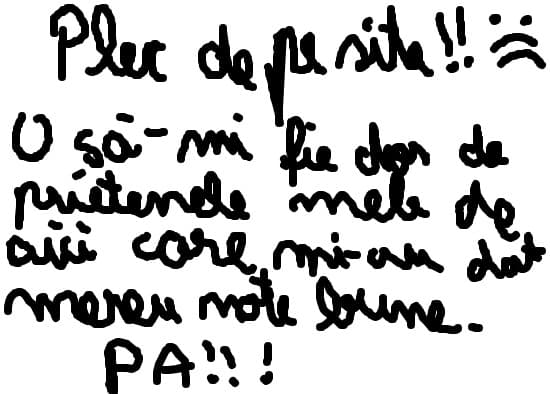 Plec de pe site!! :((
O să-mi fie dor de
prietenele mele de
aici care mi-au dat
mereu note bune.
PA!!!